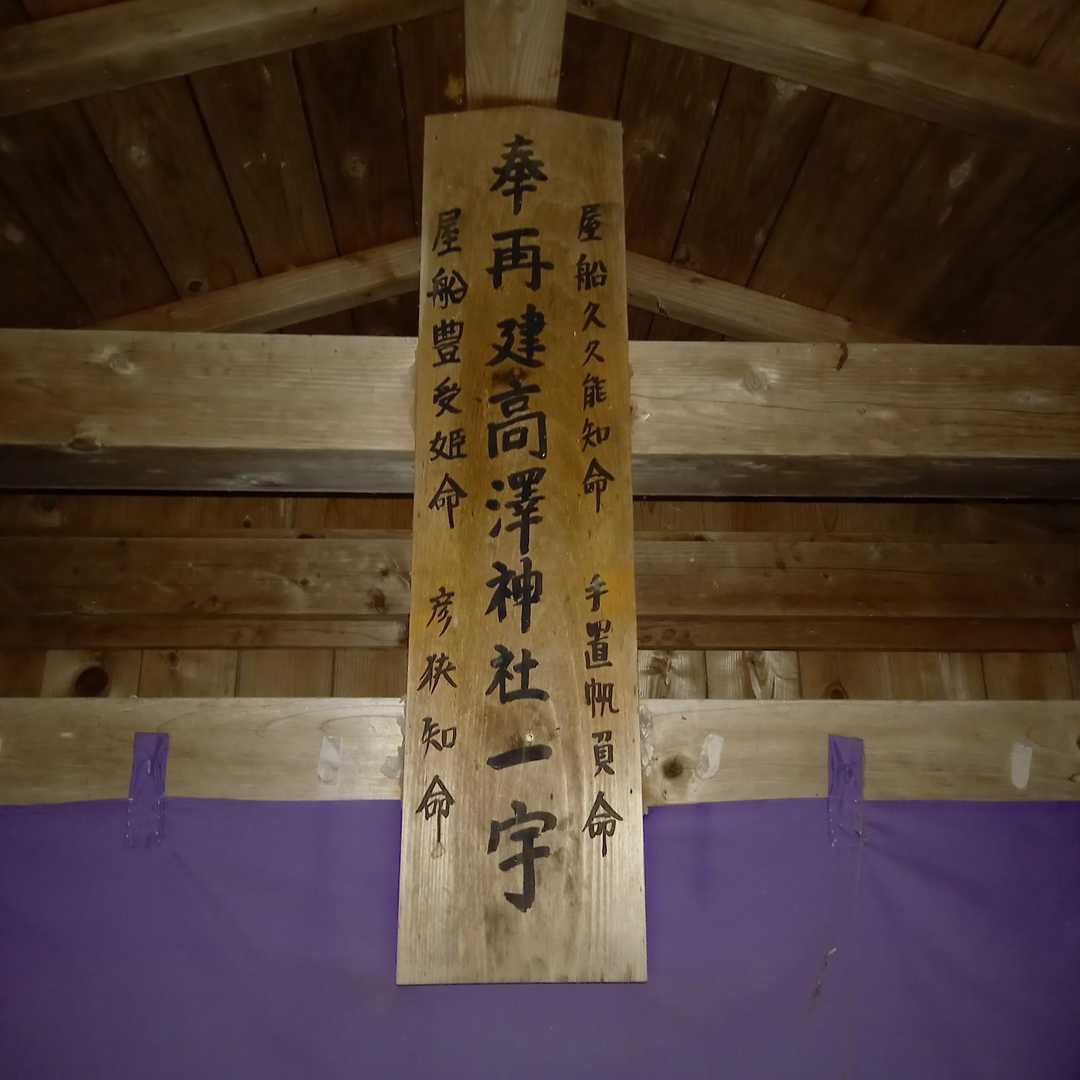 屋船久久能知命　手置帆負命
奉再建高澤神社一宇
屋船豊受姫命　彦狭知命